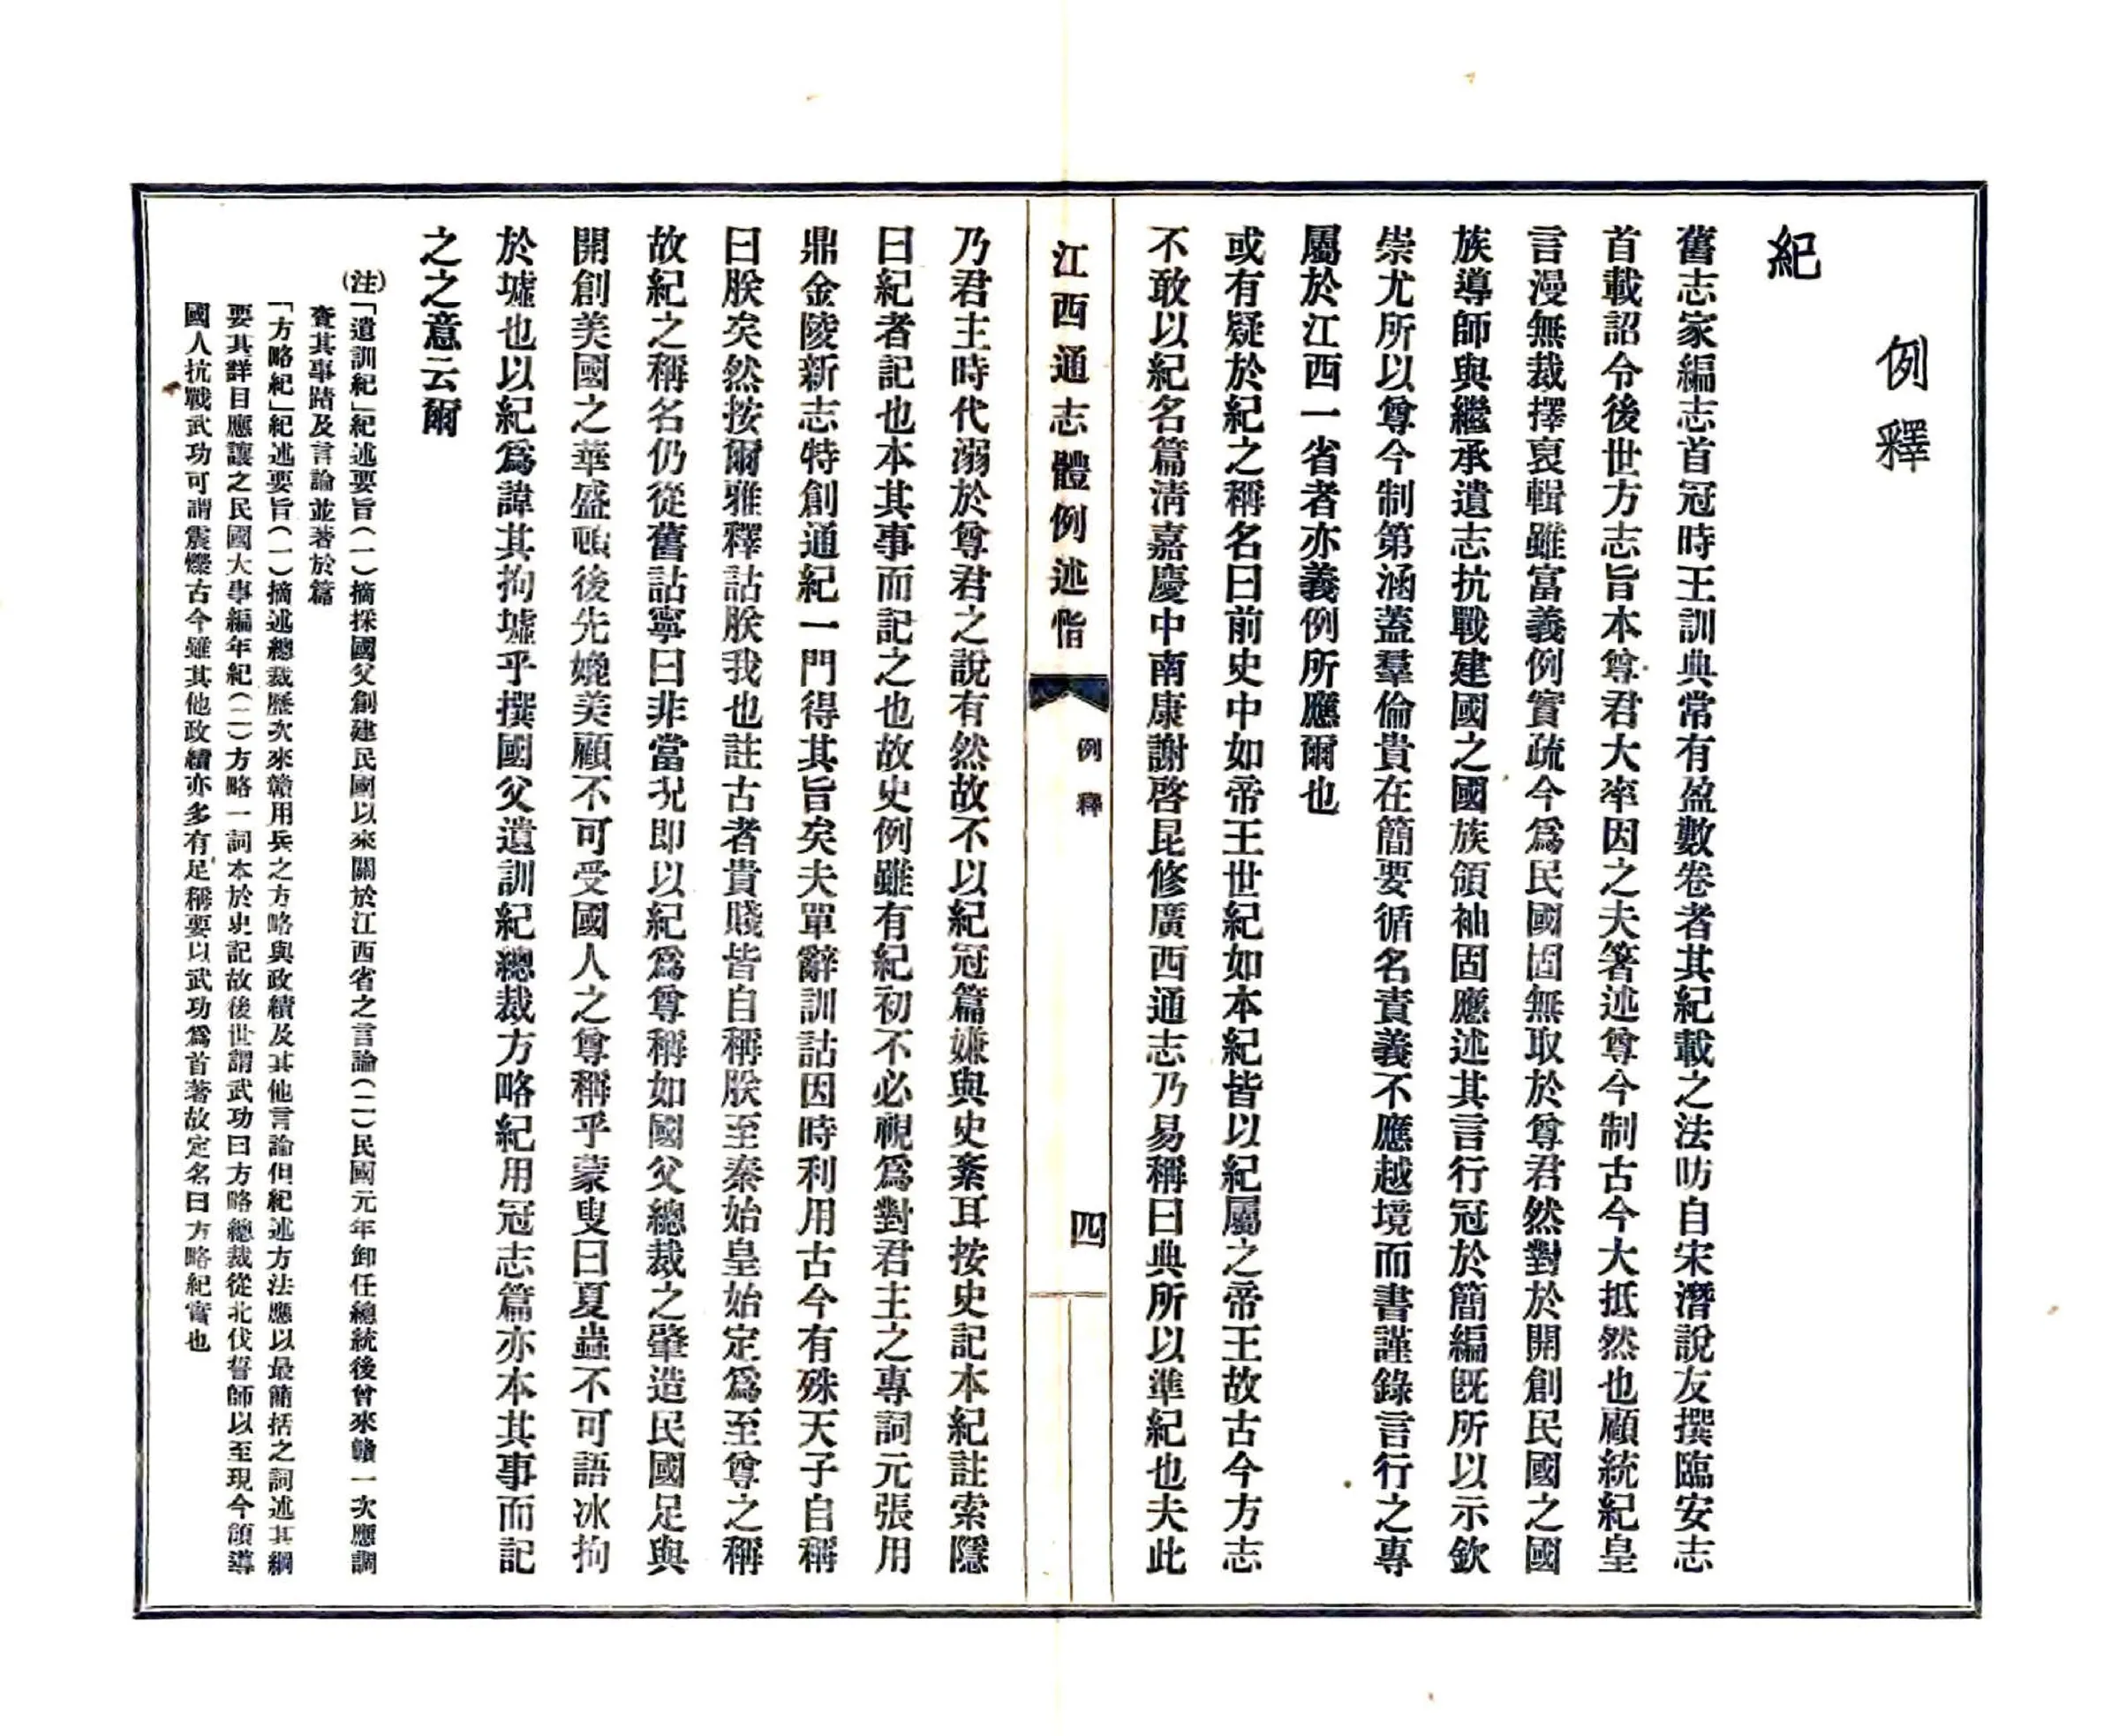 例釋
紀
舊志家編志首冠時王訓典常有盈數卷者其紀載之法昉自宋潛說友撰臨安志
首載詔令後世方志旨本尊君大率因之夫箸述尊今制古今大抵然也顧統紀皇
言漫無裁擇裒輯雖富義例實疏今爲民國固無取於尊君然對於開創民國之國
族導師與繼承遺志抗戰建國之國族領袖固應述其言行冠於簡編旣所以示欽
崇尤所以尊今制第涵蓋羣倫貴在簡要循名責義不應越境而書謹錄言行之專
屬於江西一省者亦義例所應爾也
或有疑於紀之稱名曰前史中如帝王世紀如本紀皆以紀屬之帝王故古今方志
不敢以紀名篇淸嘉慶中南康謝啓昆修廣西通志乃易稱曰典所以準紀也夫此
江西通志體例述恉
例釋
四
乃君主時代溺於尊君之說有然故不以紀冠篇嫌與史紊耳按史記本紀註索隱
曰紀者記也本其事而記之也故史例雖有紀初不必視爲對君主之專詞元張用
鼎金陵新志特創通紀一門得其旨矣夫單辭訓詁因時利用古今有殊天子自稱
曰朕矣然按爾雅釋詁朕我也註古者貴賤皆自稱朕至秦始皇始定爲至尊之稱
故紀之稱名仍從舊詁寧曰非當況即以紀爲尊稱如國父總裁之肇造民國足與
開創美國之華盛頓後先媲美顧不可受國人之尊稱乎蒙叟曰夏蟲不可語冰拘
於墟也以紀爲諱其拘墟乎撰國父遺訓紀總裁方略紀用冠志篇亦本其事而記
之之意云爾
(注)「遺訓紀」紀述要旨(一)摘採國父創建民國以來關於江西省之言論(二)民國元年卸任總統後曾來贛一次應調
查其事蹟及言論並著於篇
「方略紀」紀述要旨(一)摘述總裁歷次來贛用兵之方略與政績及其他言論但紀述方法應以最簡括之詞述其綱
要其詳目應讓之民國大事編年紀(二)方略一詞本於史記故後世謂武功曰方略總裁從北伐誓師以至現今領導
國人抗戰武功可謂震爍古今雖其他政績亦多有足稱要以武功爲首著故定名曰方略紀實也